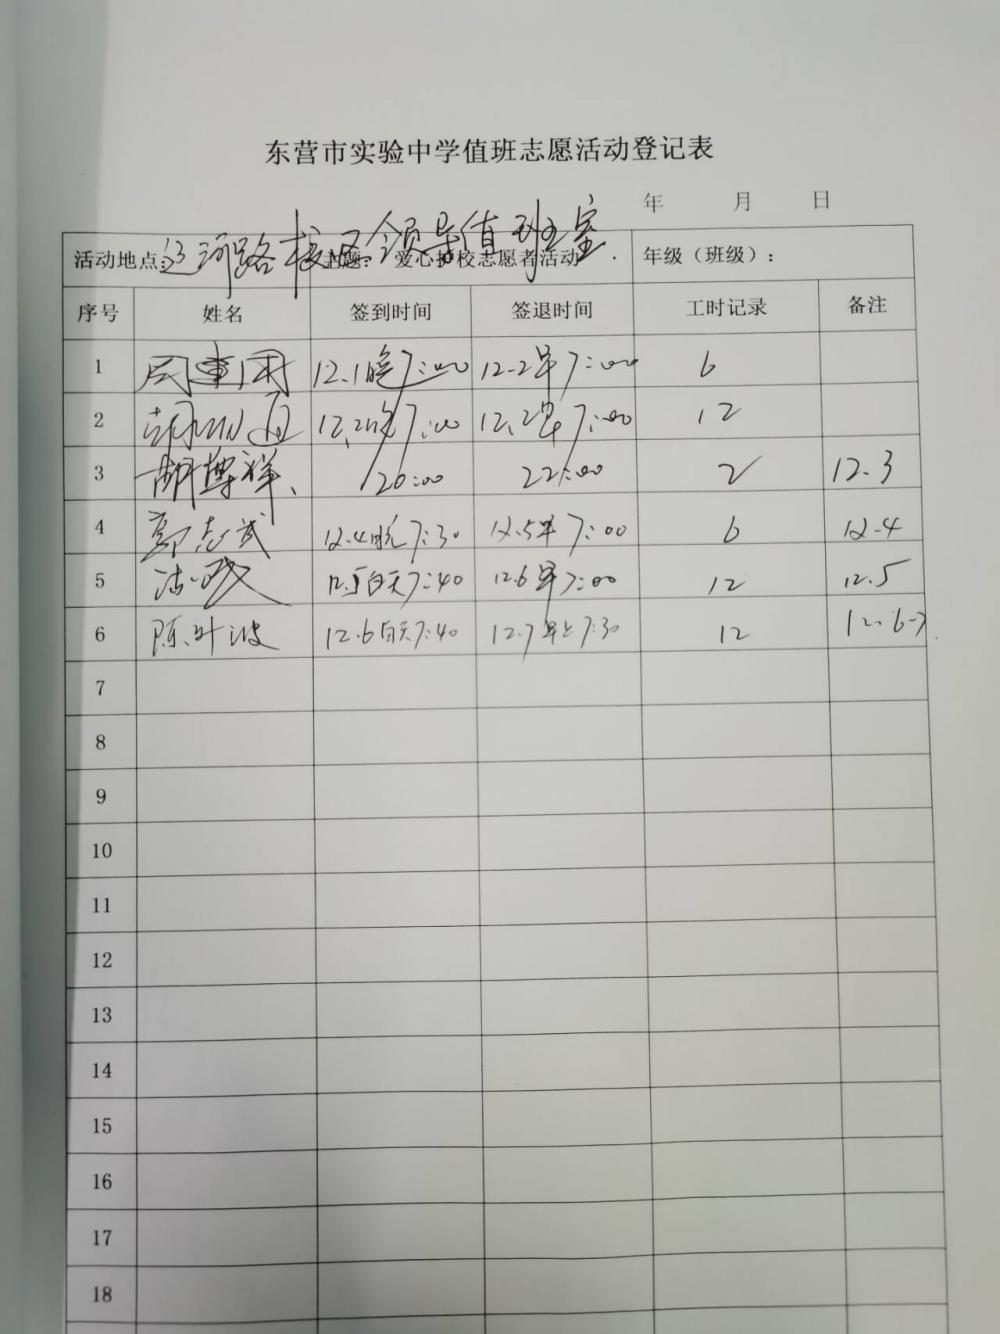 东营市实验中学值班志愿活动登记表
年 月 日
活动地点: 辽河路校区领导值班室 主题: 爱心护校志愿者活动 年级（班级）:
序号 姓名 签到时间 签退时间 工时记录 备注
1 12.1晚7:00 12.2早7:00 6
2 12.2晚7:00 12.2早7:00 12
3 胡博祥 20:00 22:00 2 12.3
4 郭志武 12.4晚7:30 12.5早7:00 6 12.4
5 12.5白天7:40 12.6早7:00 12 12.5
6 陈叶波 12.6白天7:40 12.7早上7:30 12 12.6-7
7
8
9
10
11
12
13
14
15
16
17
18